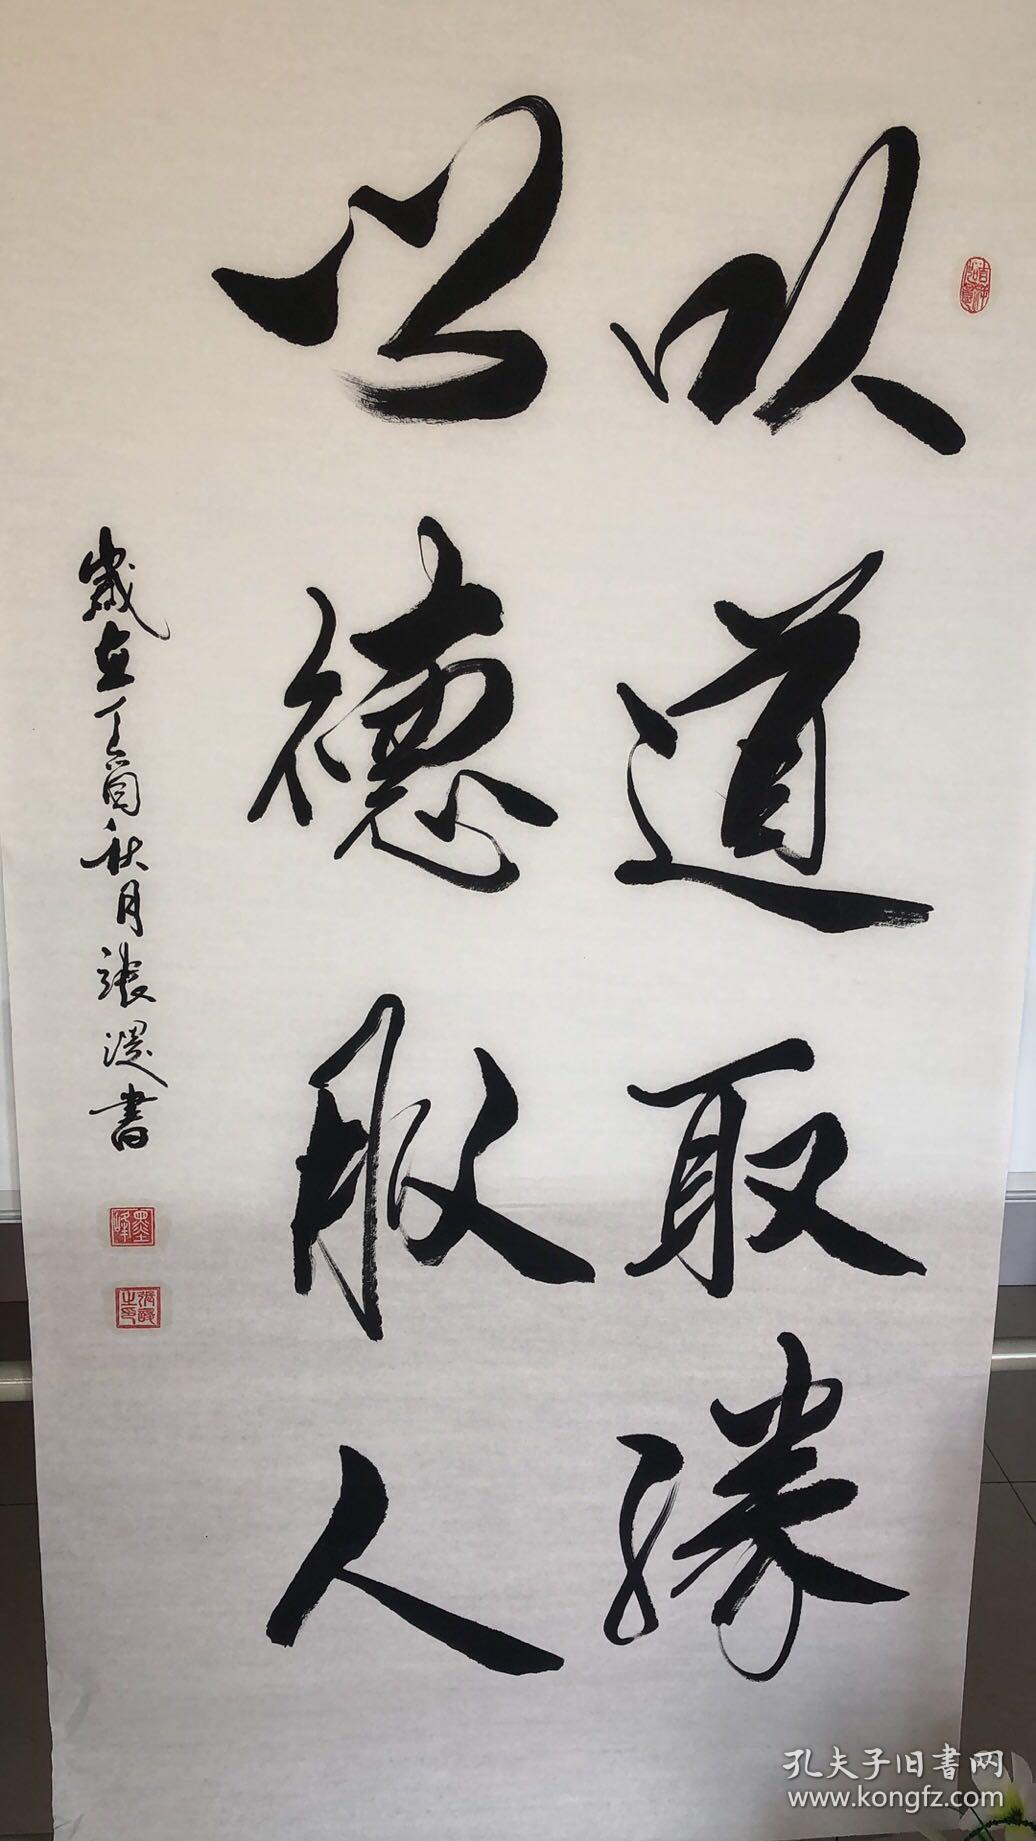 以道取勝
以德服人
歲在丁酉秋月張渥書
孔夫子旧書网
www.kongfz.com